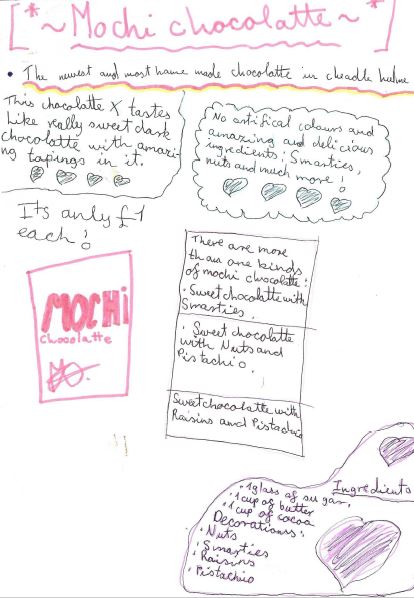 [*~Mochi chocolatte~*]
• The newest and most home made chocolatte in cheadle hulme
This chocolatte X tastes
like really sweet dark
chocolatte with amazi-
ng topings in it.
No artifical colours and
amazing and delicious
ingredients: Smarties,
nuts and much more!
Its only £1
each!
There are more
than one kinds
of mochi chocolatte:
• Sweet chocolatte with
Smarties.
• Sweet chocolatte
with Nuts and
Pistachio.
Sweet chocolatte with
Raisins and Pistachio
MOCHI
Chocolatte
Ingredients
• 1 glass of sugar,
• 1 cup of butter
• 1 cup of cocoa
Decorations:
• Nuts
• Smarties
• Raisins
• Pistachio